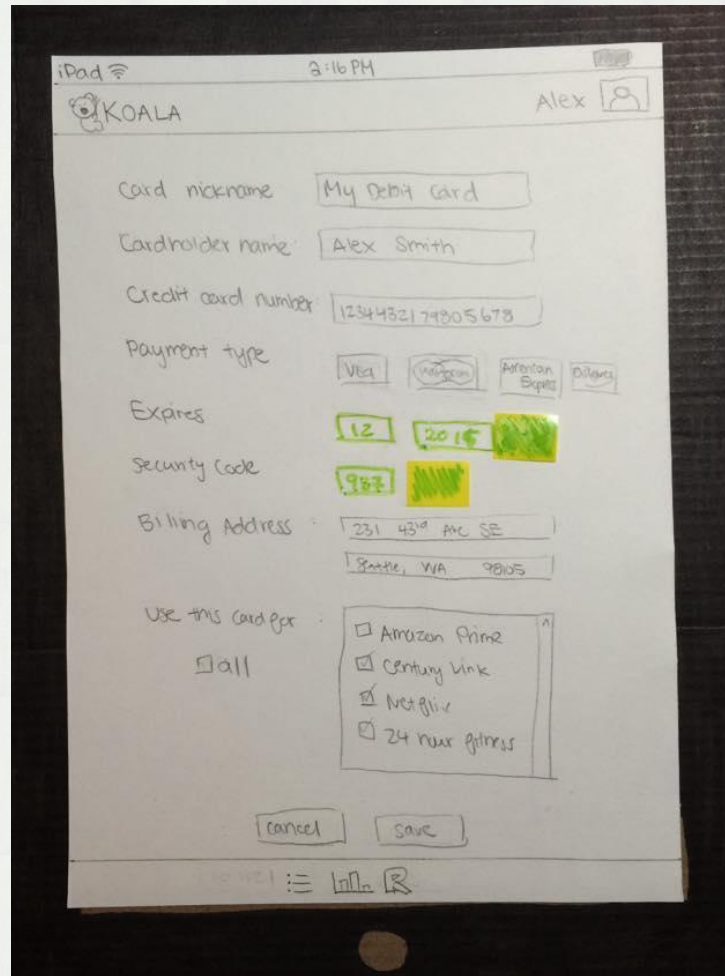 iPad 2:16 PM
KOALA Alex
Card nickname My Debit Card
Cardholder name Alex Smith
Credit card number 1234432179805678
Payment type Visa American Express
Expires 12 2015
Security Code 987
Billing Address : 231 43rd Ave SE
Seattle, WA 98105
Use this card for :
all
Amazon Prime
Century Link
Netflix
24 hour fitness
cancel save